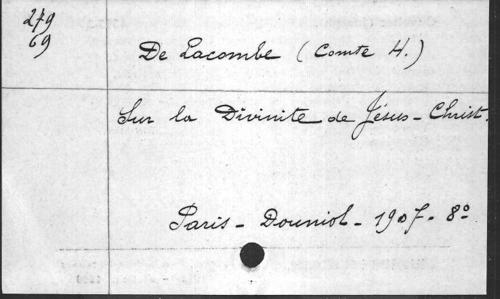 279
69
De Lacombe (Comte H.)
Sur la Divinite de Jésus-Christ.
Paris - Douniol - 1907 - 8º